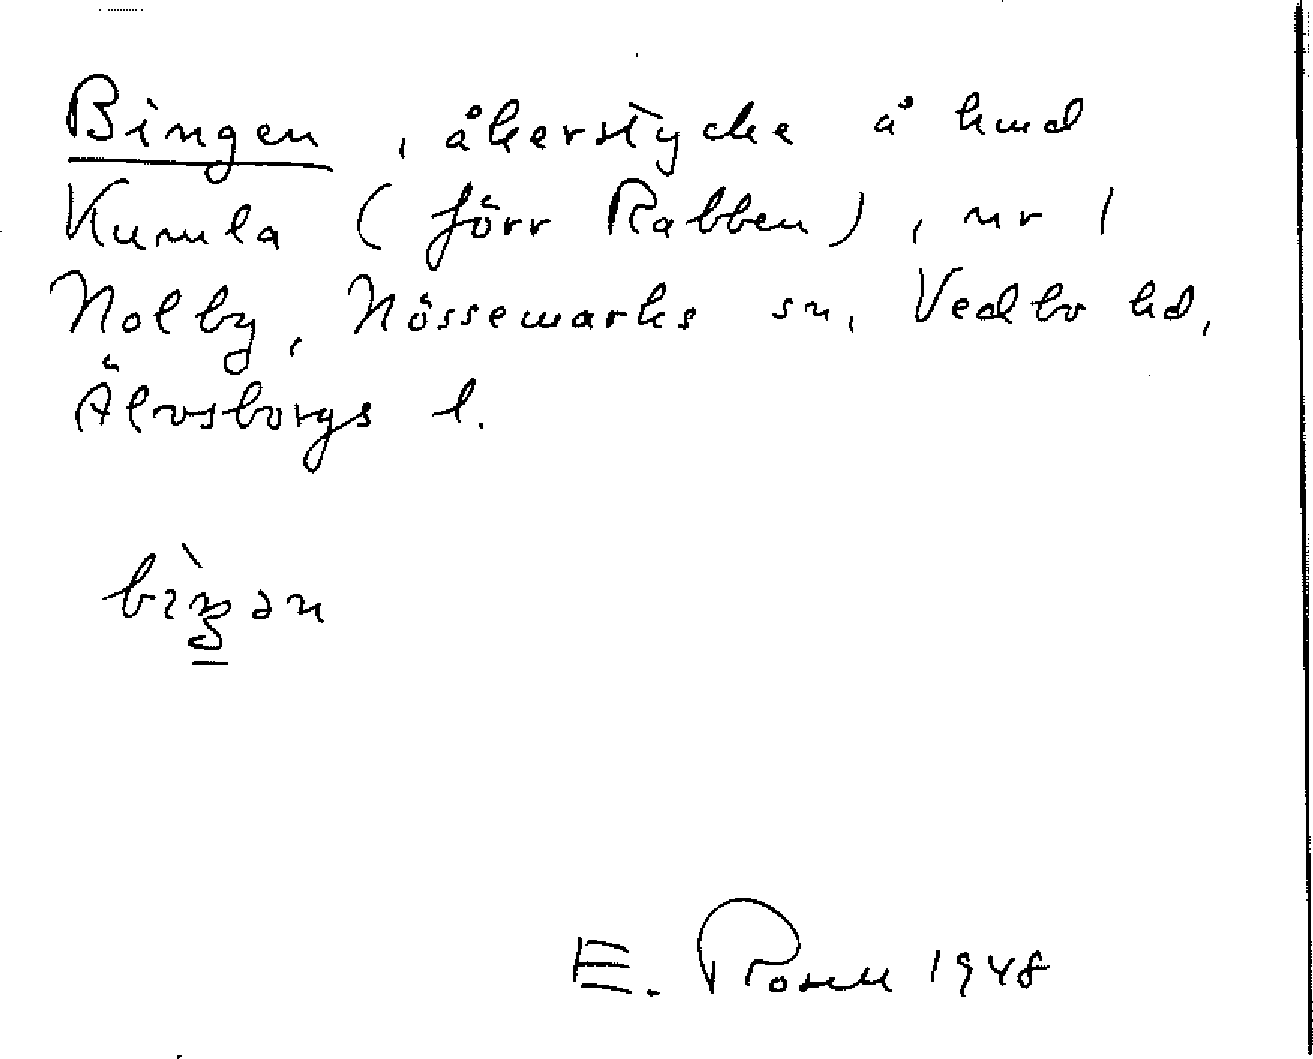 Bingen, åkerstycke å hmd
Kumla (förr Rabben), nr 1
Nolby, Nössemarks sn, Vedbo hd,
Älvsborgs l.
E. Rosell 1948